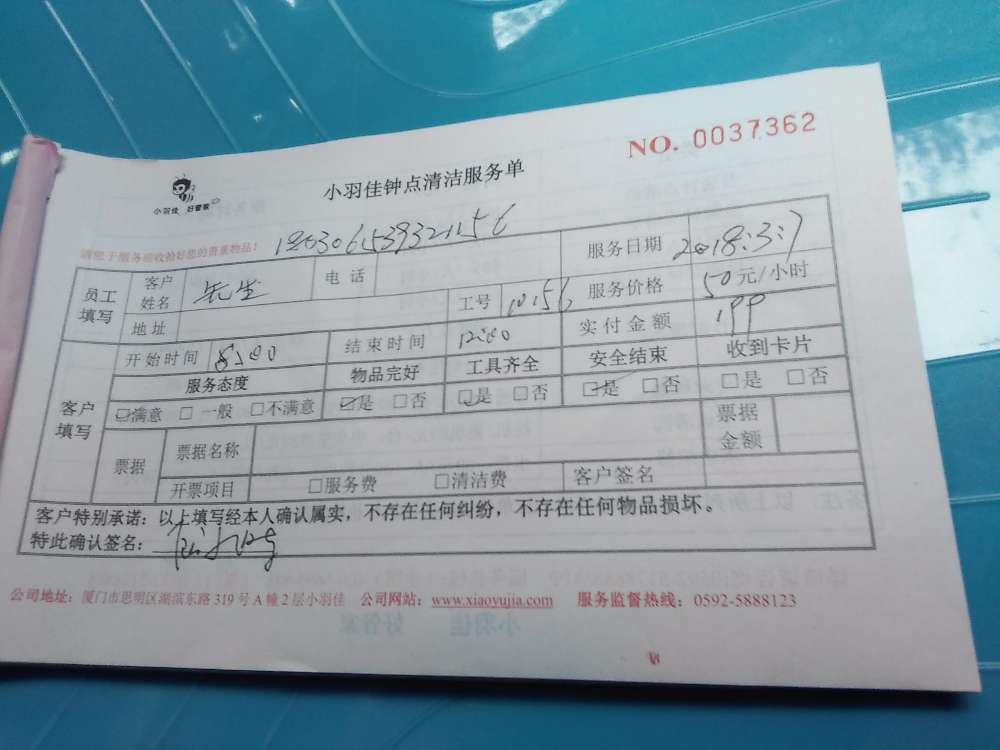 NO. 0037362
小羽佳钟点清洁服务单
小羽佳 好管家
请您于服务前收拾好您的贵重物品!
员工填写 客户姓名 先生 电话 服务日期 2018:3:7
地址 工号 10156 服务价格 50元/小时
开始时间 8:00 结束时间 12:00 实付金额 199
客户填写 服务态度 物品完好 工具齐全 安全结束 收到卡片
☑满意 □一般 □不满意 ☑是 □否 ☑是 □否 ☑是 □否 □是 □否
票据 票据名称 票据金额
开票项目 □服务费 □清洁费 客户签名
客户特别承诺：以上填写经本人确认属实，不存在任何纠纷，不存在任何物品损坏。
特此确认签名：
公司地址：厦门市思明区湖滨东路319号A幢2层小羽佳 公司网站：www.xiaoyujia.com 服务监督热线：0592-5888123